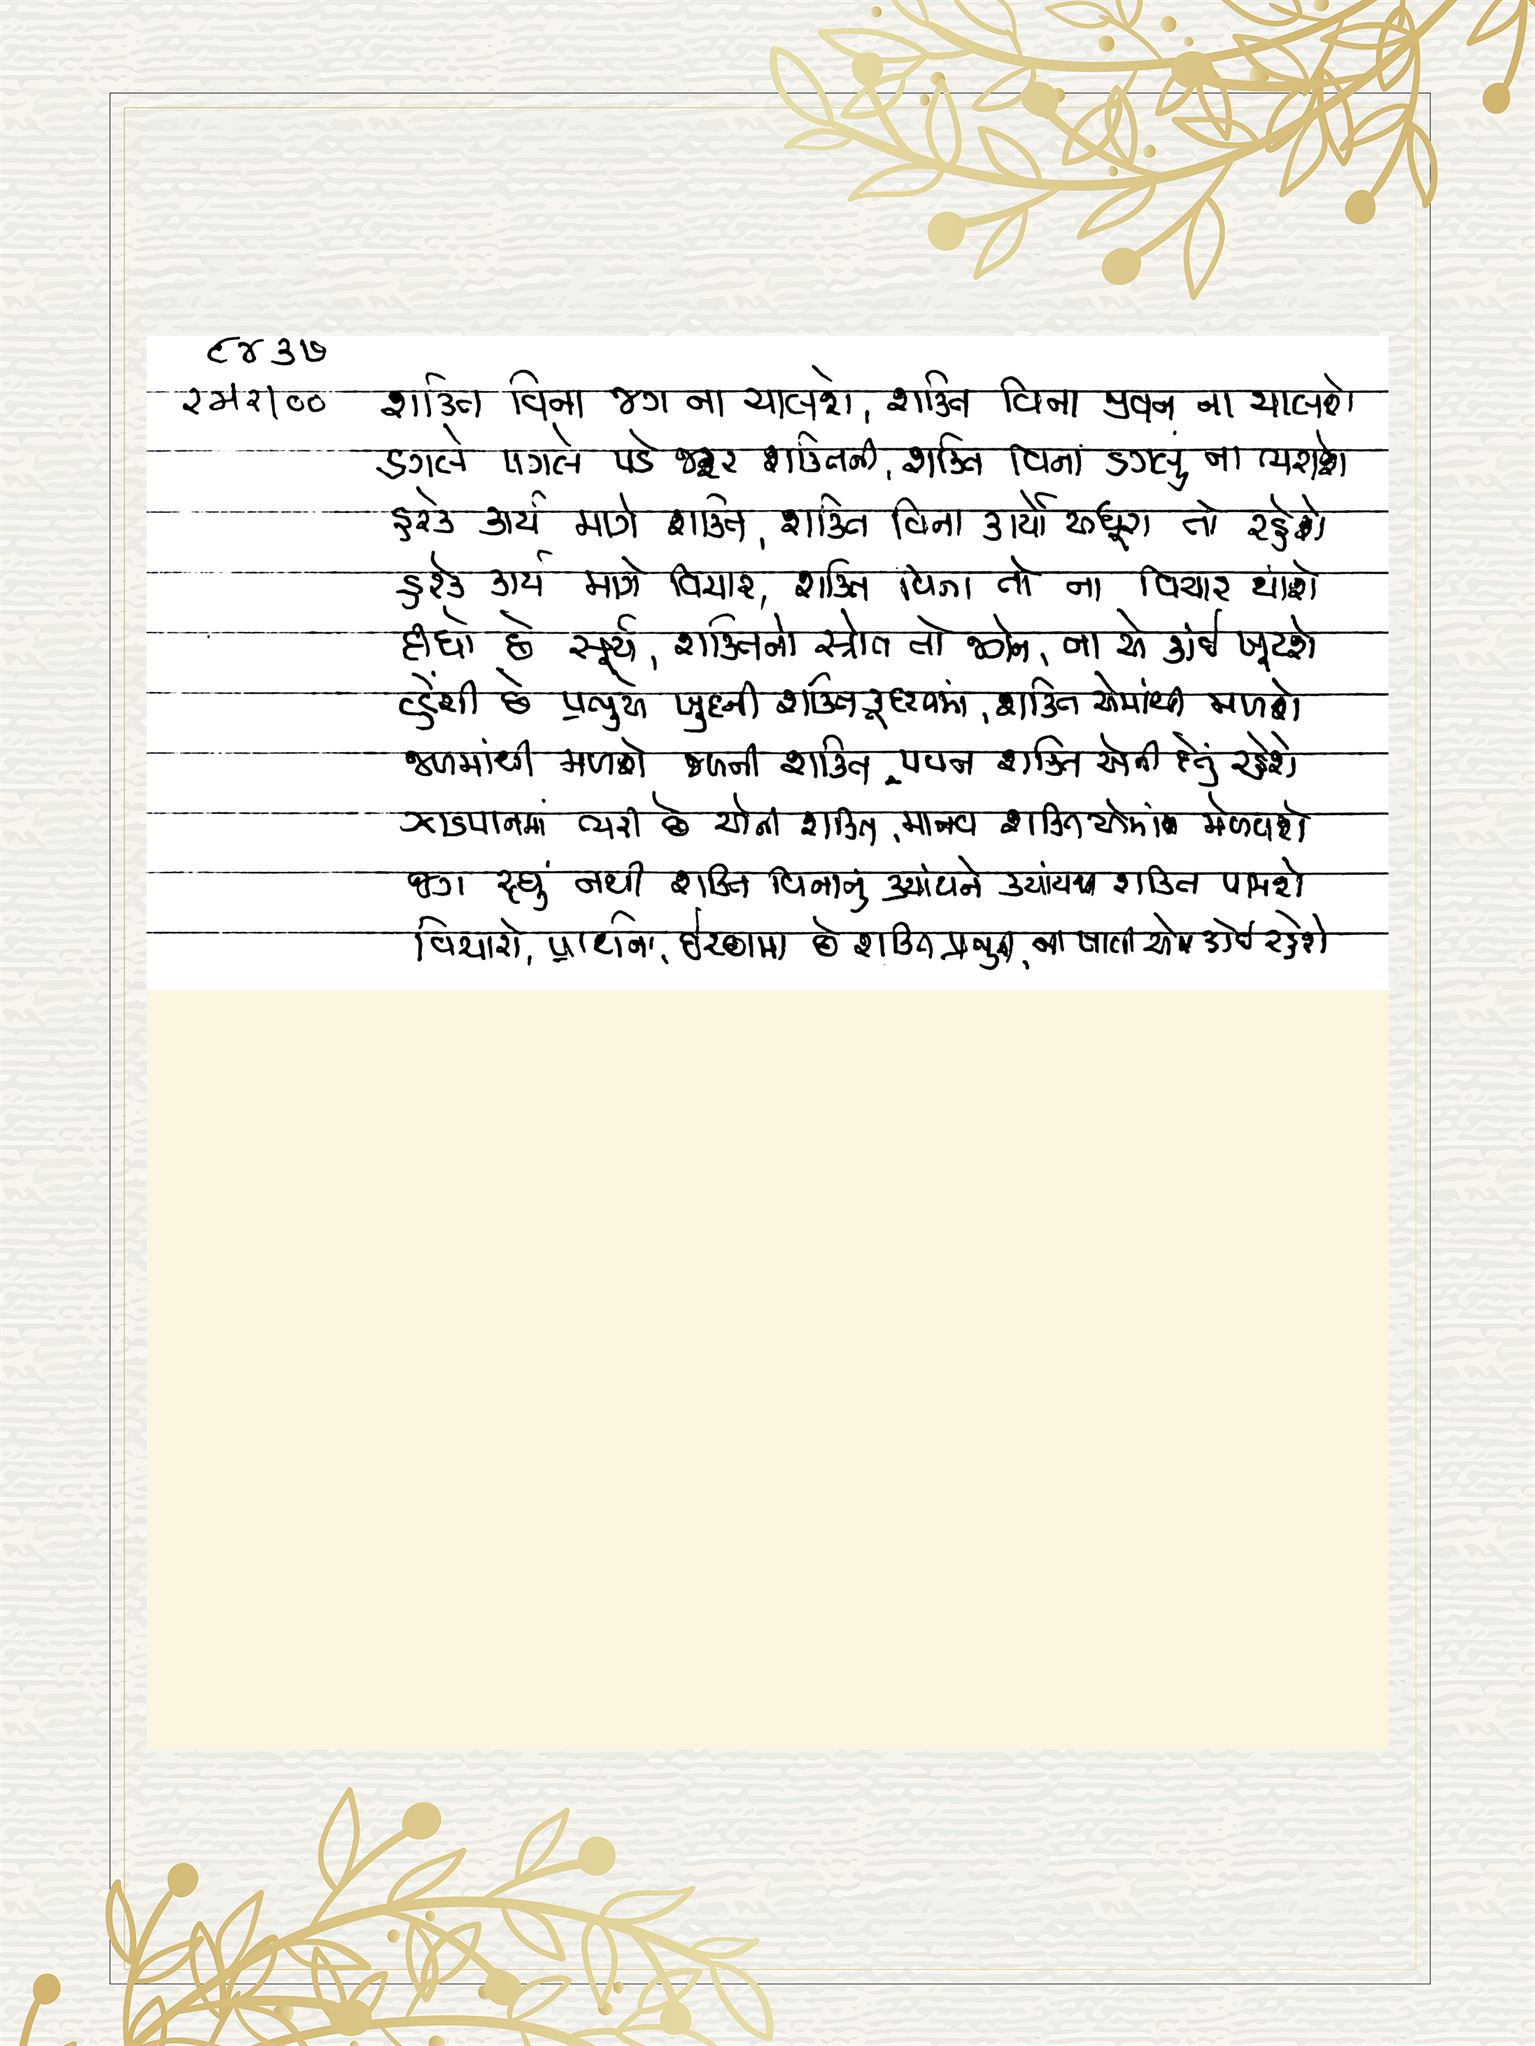 ૯૪૩૭
શક્તિ વિના જગ ના ચાલશે, શક્તિ વિના પવન ના ચાલશે
ડગલે પગલે પડે જરૂર શક્તિની, શક્તિ વિના ડગલું ના ભરાશે
હરેક કાર્ય માગે શક્તિ, શક્તિ વિના કાર્યો અધૂરા તો રહેશે
હરેક કાર્ય માગે વિચાર, શક્તિ વિના તો ના વિચાર થાશે
દીધો છે સૂર્ય, શક્તિનો સ્ત્રોત તો જેને, ના એ કાંઈ ખૂટશે
છે પ્રભુએ ખુદની શક્તિ, શક્તિ એમાંથી મળશે
જળમાંથી મળશે જળની શક્તિ, પવન શક્તિ એની દેતું રહેશે
ઝાડપાનમાં ભરી છે એની શક્તિ, માનવ શક્તિ એમાં મેળવશે
જગ રહ્યું નથી શક્તિ વિનાનું ક્યાંયને ક્યાંય શક્તિ પામશે
વિચારો, પ્રાર્થના, ઈચ્છામાં છે શક્તિ પ્રભુની, ના ખાલી એમ કોઈ રહેશે